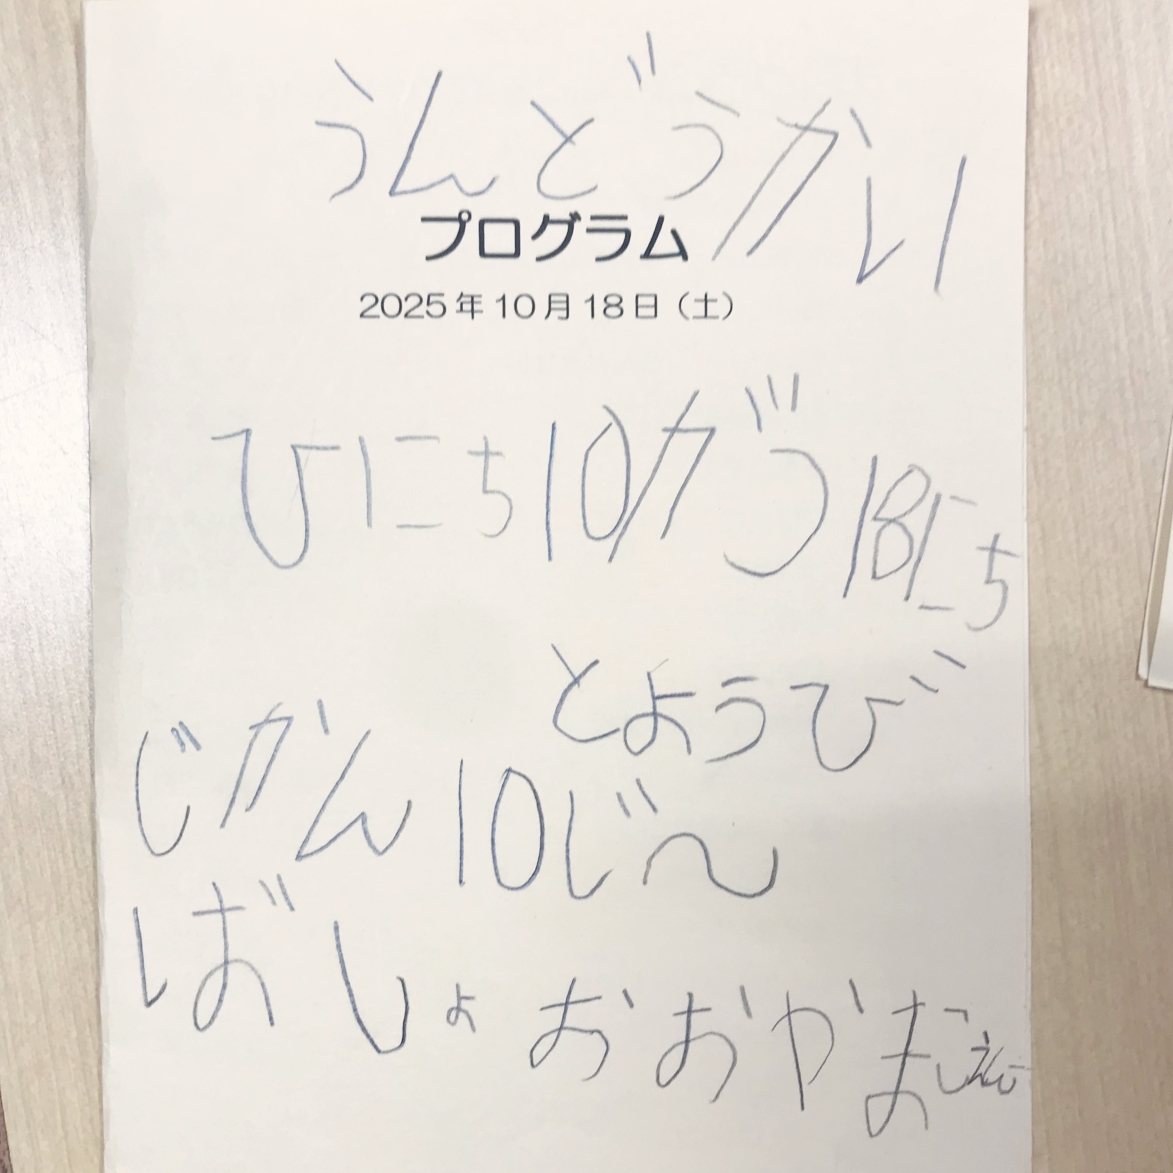 うんどうかい
プログラム
2025年10月18日（土）
ひにち10がつ18にち
とようび
じかん10じ〜
ばしょ おおやまこうえん